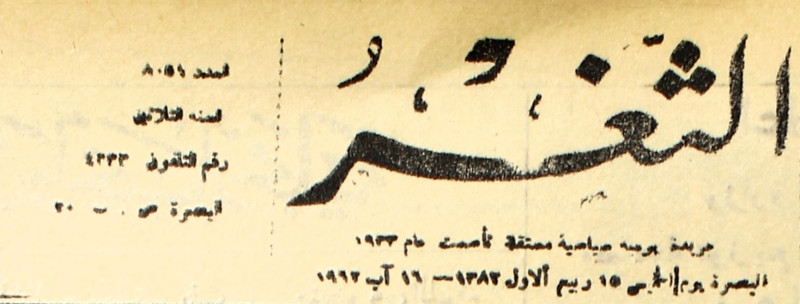 الثغر
جريدة يومية سياسية مستقلة تأسست عام ١٩٣٣
البصرة يوم الخميس ١٥ ربيع الاول ١٣٨٢ — ١٦ آب ١٩٦٢
العدد ٨٠٥٦
السنه الثلاثين
رقم التلفون ٤٢٣٣
البصرة ص . ب ٢٠